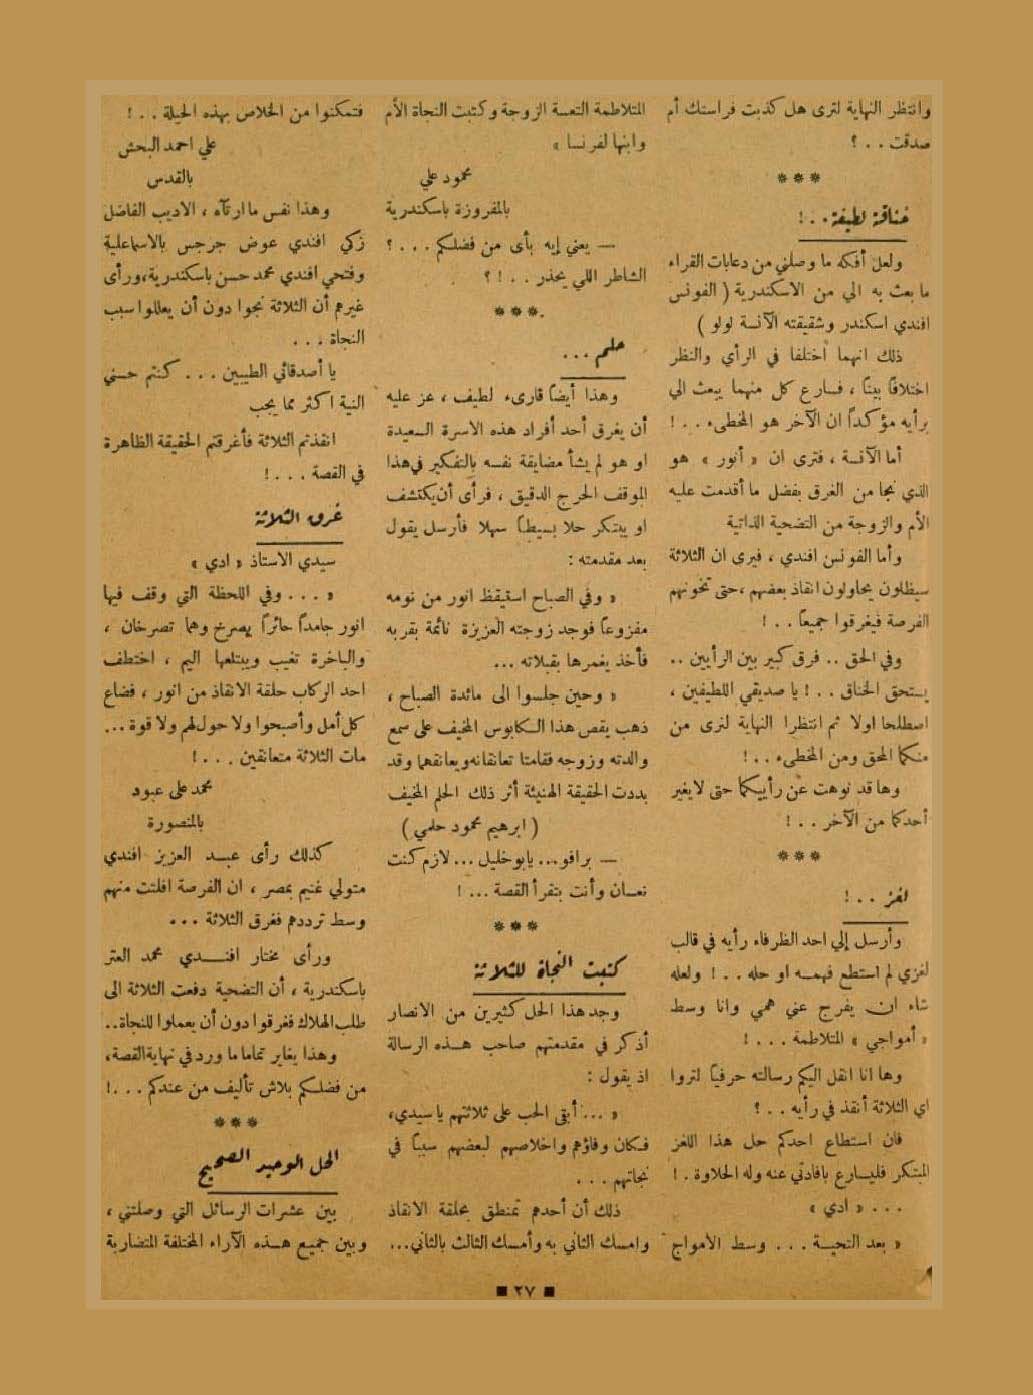 وانتظر النهاية لترى هل كذبت فراستك أم
صدقت . . ؟
***
خناقة لطيفة . . !
ولعل أفكه ما وصلني من دعابات القراء
ما بعث به الي من الاسكندرية ( الفونس
افندي اسكندر وشقيقته الآنسة لولو )
ذلك انهما اختلفا في الرأي والنظر
اختلافا بينا ، فسارع كل منهما يبعث الي
برأيه مؤكداً ان الآخر هو المخطىء . . !
أما الآنسة ، فترى ان « أنور » هو
الذي نجا من الغرق بفضل ما أقدمت عليه
الأم والزوجة من التضحية الذاتية
وأما الفونس افندي ، فيرى ان الثلاثة
سيظلون يحاولون انقاذ بعضهم ، حتى تخونهم
الفرصة فيغرقوا جميعاً . . !
وفي الحق .. فرق كبير بين الرأيين ..
يستحق الخناق . . ! يا صديقي اللطيفين ،
اصطلحا اولا ثم انتظرا النهاية لنرى من
منكما المحق ومن المخطىء . . !
وها قد نوهت عن رأييكما حتى لايغير
أحدكما من الآخر . . !
***
لغز . . !
وأرسل إلي احد الظرفاء رأيه في قالب
لغزي لم استطع فهمه او حله . . ! ولعله
شاء ان يفرج عني همي وانا وسط
« أمواجي » المتلاطمة . . . !
وها انا انقل اليكم رسالته حرفياً لتروا
اي الثلاثة أنقذ في رأيه . . ؟
فان استطاع احدكم حل هذا اللغز
المبتكر فليسارع بافادتي عنه وله الحلاوة . !
. . . « ادي »
« بعد التحية . . . وسط الأمواج
المتلاطمة التعسة الزوجة وكتبت النجاة الأم
وابنها لفرنسا »
محمود علي
بالمفروزة باسكندرية
— يعني إيه بأى من فضلكم . . . ؟
الشاطر اللي يحذر . . ! ؟
***
حلم . . .
وهذا أيضاً قارىء لطيف ، عز عليه
أن يغرق أحد أفراد هذه الاسرة السعيدة
او هو لم يشأ مضايقة نفسه بالتفكير في هذا
الموقف الحرج الدقيق ، فرأى أن يكتشف
او يبتكر حلا بسيطاً سهلا فأرسل يقول
بعد مقدمته :
« وفي الصباح استيقظ انور من نومه
مفزوعاً فوجد زوجته العزيزة نائمة بقربه
فأخذ يغمرها بقبلاته ...
« وحين جلسوا الى مائدة الصباح ،
ذهب يقص هذا الكابوس المخيف على سمع
والدته وزوجه فقامتا تعانقانه ويعانقهما وقد
بددت الحقيقة الهنيئة أثر ذلك الحلم المخيف
( ابرهيم محمود حلمي )
— برافو... يابوخليل ... لازم كنت
نعسان وأنت بتقرأ القصة ... !
***
كتبت النجاة للثلاثة
وجد هذا الحل كثيرين من الانصار
أذكر في مقدمتهم صاحب هذه الرسالة
اذ يقول :
« ... أبقى الحب على ثلاثتهم يا سيدي ،
فكان وفاؤهم واخلاصهم لبعضهم سبباً في
نجاتهم . . .
ذلك أن أحدهم تمنطق بحلقة الانقاذ
وامسك الثاني به وأمسك الثالث بالثاني...
فتمكنوا من الخلاص بهذه الحيلة . . . !
علي احمد البحش
بالقدس
وهذا نفس ما ارتآه ، الاديب الفاضل
زكي افندي عوض جرجس بالاسماعلية
وفتحي افندي محمد حسن باسكندرية ، ورأى
غيرهم أن الثلاثة نجوا دون أن يعللوا سبب
النجاة . . .
يا أصدقائي الطيبين . . . كنتم حسني
النية اكثر مما يجب
انقذتم الثلاثة فأغرقتم الحقيقة الظاهرة
في القصة . . . !
غرق الثلاثة
سيدي الاستاذ « ادي »
« . . . وفي اللحظة التي وقف فيها
انور جامداً حائراً يصرخ وهما تصرخان ،
والباخرة تغيب ويبتلعها اليم ، اختطف
احد الركاب حلقة الانقاذ من انور ، فضاع
كل أمل وأصبحوا ولا حول لهم ولا قوة ...
مات الثلاثة متعانقين . . . !
محمد على عبود
بالمنصورة
كذلك رأى عبد العزيز افندي
متولي غنيم بمصر ، ان الفرصة افلتت منهم
وسط ترددهم فغرق الثلاثة ...
ورأى مختار افندي محمد العتر
باسكندرية ، أن التضحية دفعت الثلاثة الى
طلب الهلاك فغرقوا دون أن يعملوا للنجاة..
وهذا يغاير تماما ما ورد في نهاية القصة ،
من فضلكم بلاش تأليف من عندكم . . . !
***
الحل الوحيد الصحيح
بين عشرات الرسائل التي وصلتني ،
وبين جميع هذه الآراء المختلفة المتضاربة
■ ٢٧ ■